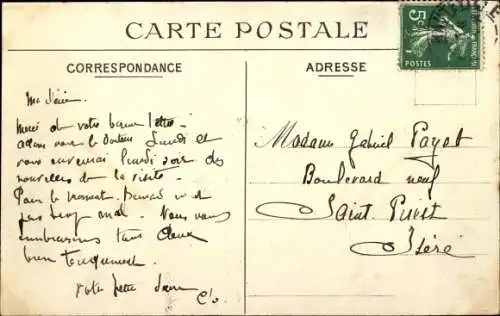 CARTE POSTALE
CORRESPONDANCE
ADRESSE
5c
POSTES
Merci de votre bonne lettre
allons voir le docteur Lundi et
vous enverrai lundi soir des
nouvelles de la visite.
Pour le moment, va
pas trop mal. Nous vous
embrassons tous deux
bien tendrement.
votre petite
Madame Gabriel Payet
Boulevard neuf
Saint
Isère